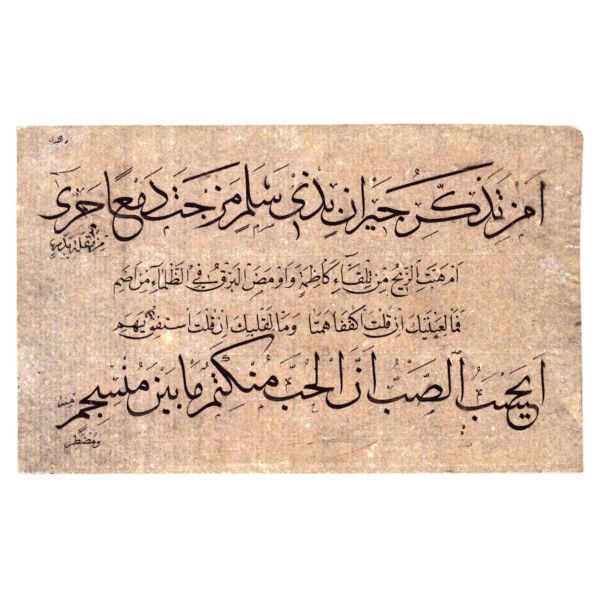 اَمِنْ تَذَكُّرِ جِيْرَانٍ بِذِى سَلَمٍ مَزَجْتَ دَمْعًا جَرٰى
مِنْ مُقْلَةٍ بِدَمِ
اَمْ هَبَّتِ الرِّيْحُ مِنْ تِلْقَاءِ كَاظِمَةٍ وَاَوْمَضَ الْبَرْقُ فِي الظَّلْمَاءِ مِنْ اِضَمِ
فَمَا لِعَيْنَيْكَ اِنْ قُلْتَ اكْفُفَا هَمَتَا وَمَا لِقَلْبِكَ اِنْ قُلْتَ اسْتَفِقْ يَهِمِ
اَيَحْسَبُ الصَّبُّ اَنَّ الْحُبَّ مُنْكَتِمٌ مَا بَيْنَ مُنْسَجِمٍ
منه
وَمُضْطَرِمِ